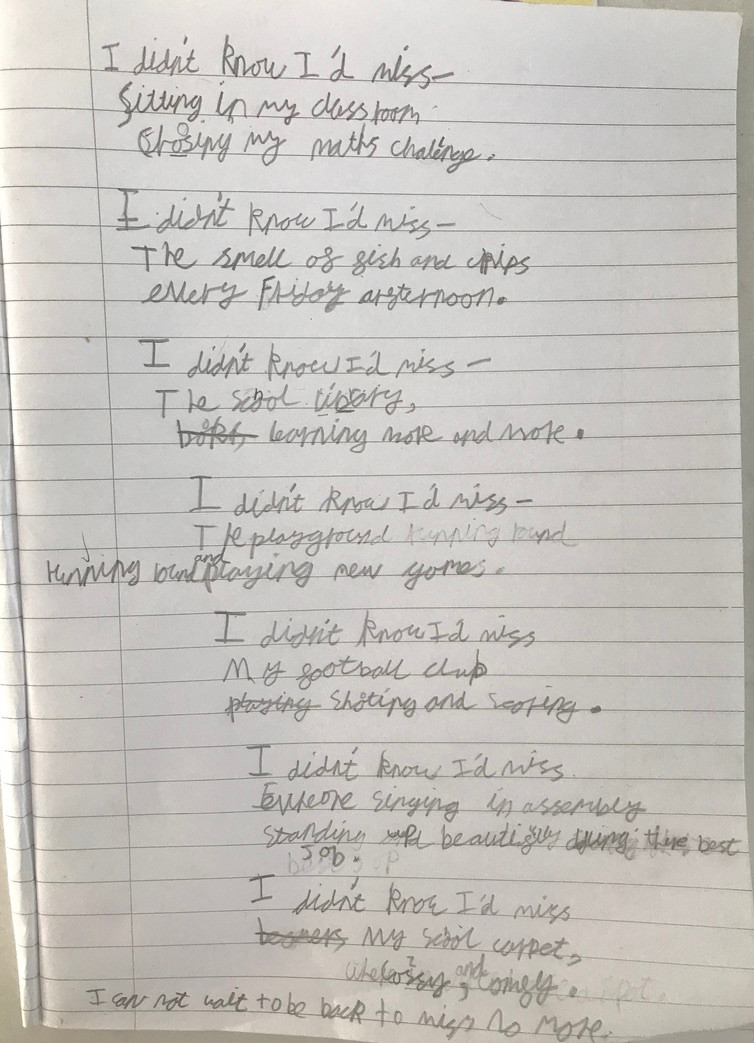 I didn't know I'd miss—
Sitting in my classroom
Chosing my maths challenge.
I didn't know I'd miss—
The smell of fish and chips
every Friday arfternoon.
I didn't know I'd miss—
The scool library,
books, learning more and more.
I didn't know I'd miss—
The playground running round
running round and playing new games.
I didn't know I'd miss
My football club
playing Shoting and scoring.
I didn't know I'd miss
singing in assembly
standing beautifuly doing there best
Job.
I didn't know I'd miss
My scool carpet,
and comfy.
I can not wait to be back to miss no more.